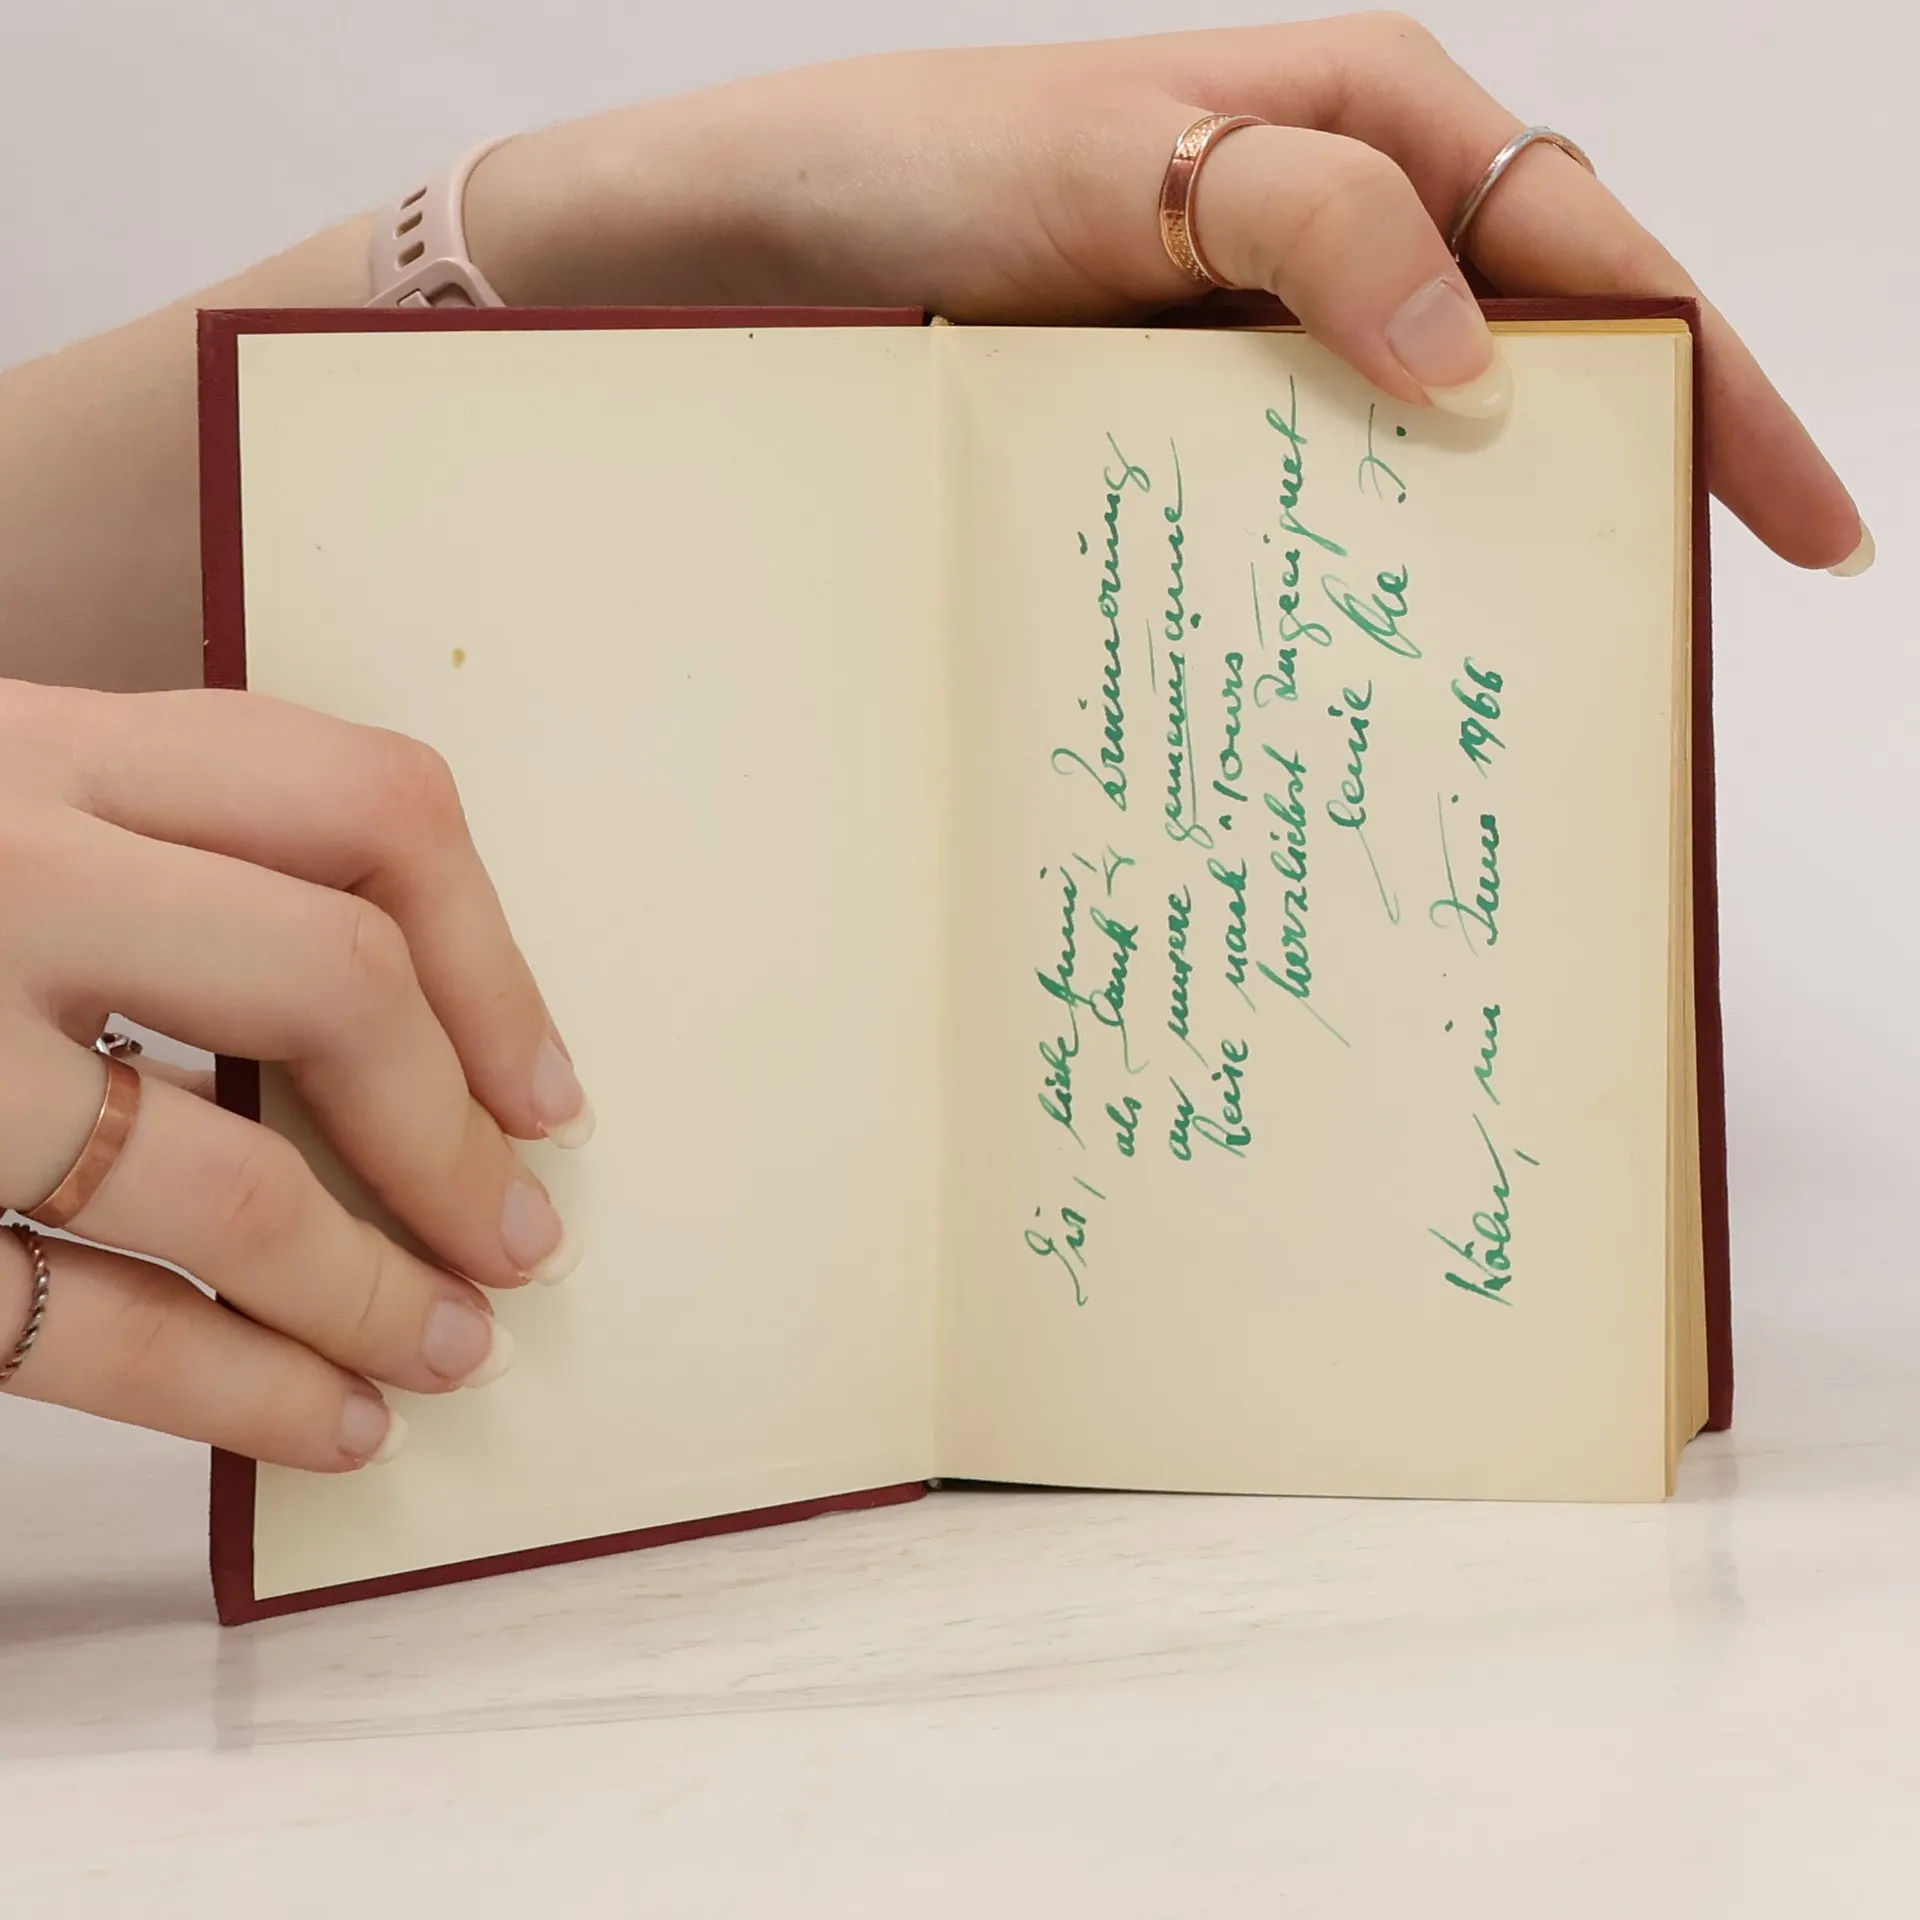 Dir, liebe Juni,
als Dank & Erinnerung
an unsere gemeinsame
Reise nach Tours
herzlichst zugeeignet
Deine
Köln, im Juni 1966